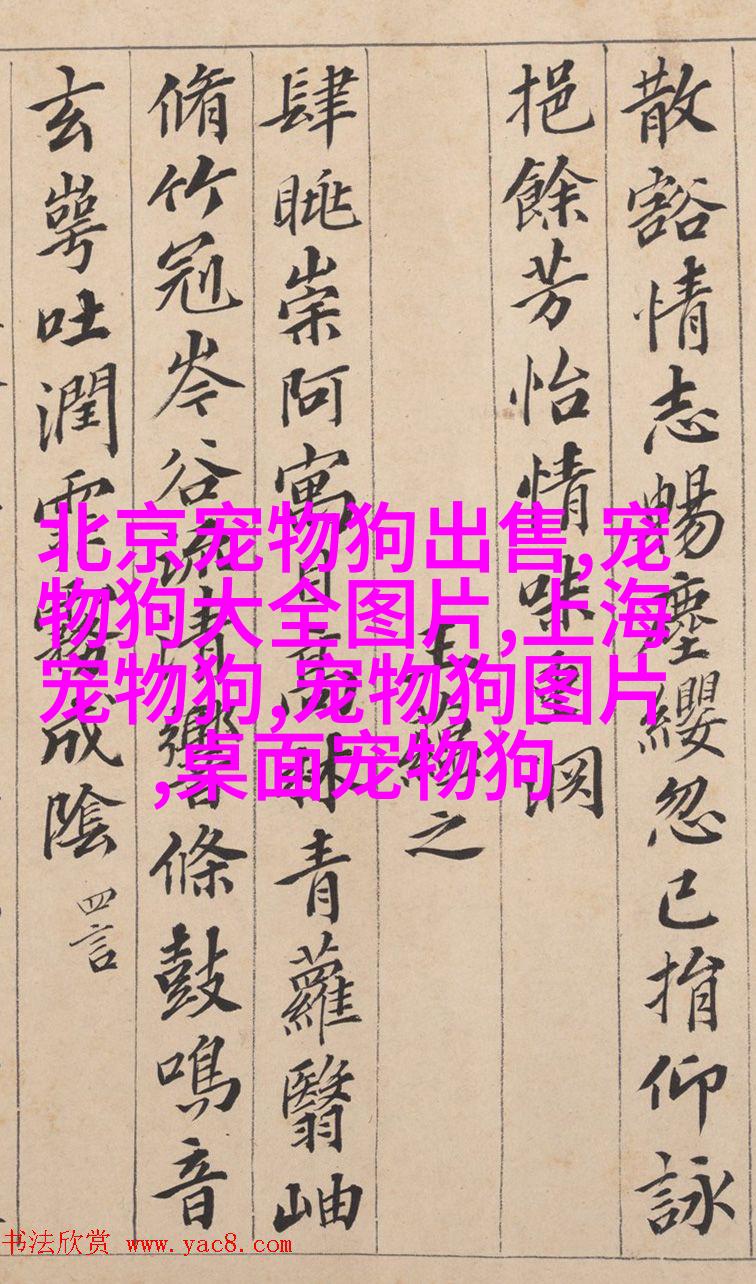 散豁情志暢塵纓忽已捐仰詠
挹餘芳怡情味重淵
王蘊之
肆眺崇阿寓目高林青蘿翳岫
脩竹冠岑谷流清響條鼓鳴音
玄崿吐潤霏霧成陰 四言
北京宠物狗出售,宠
物狗大全图片,上海
宠物狗,宠物狗图片
,桌面宠物狗
书法欣赏 www.yac8.com